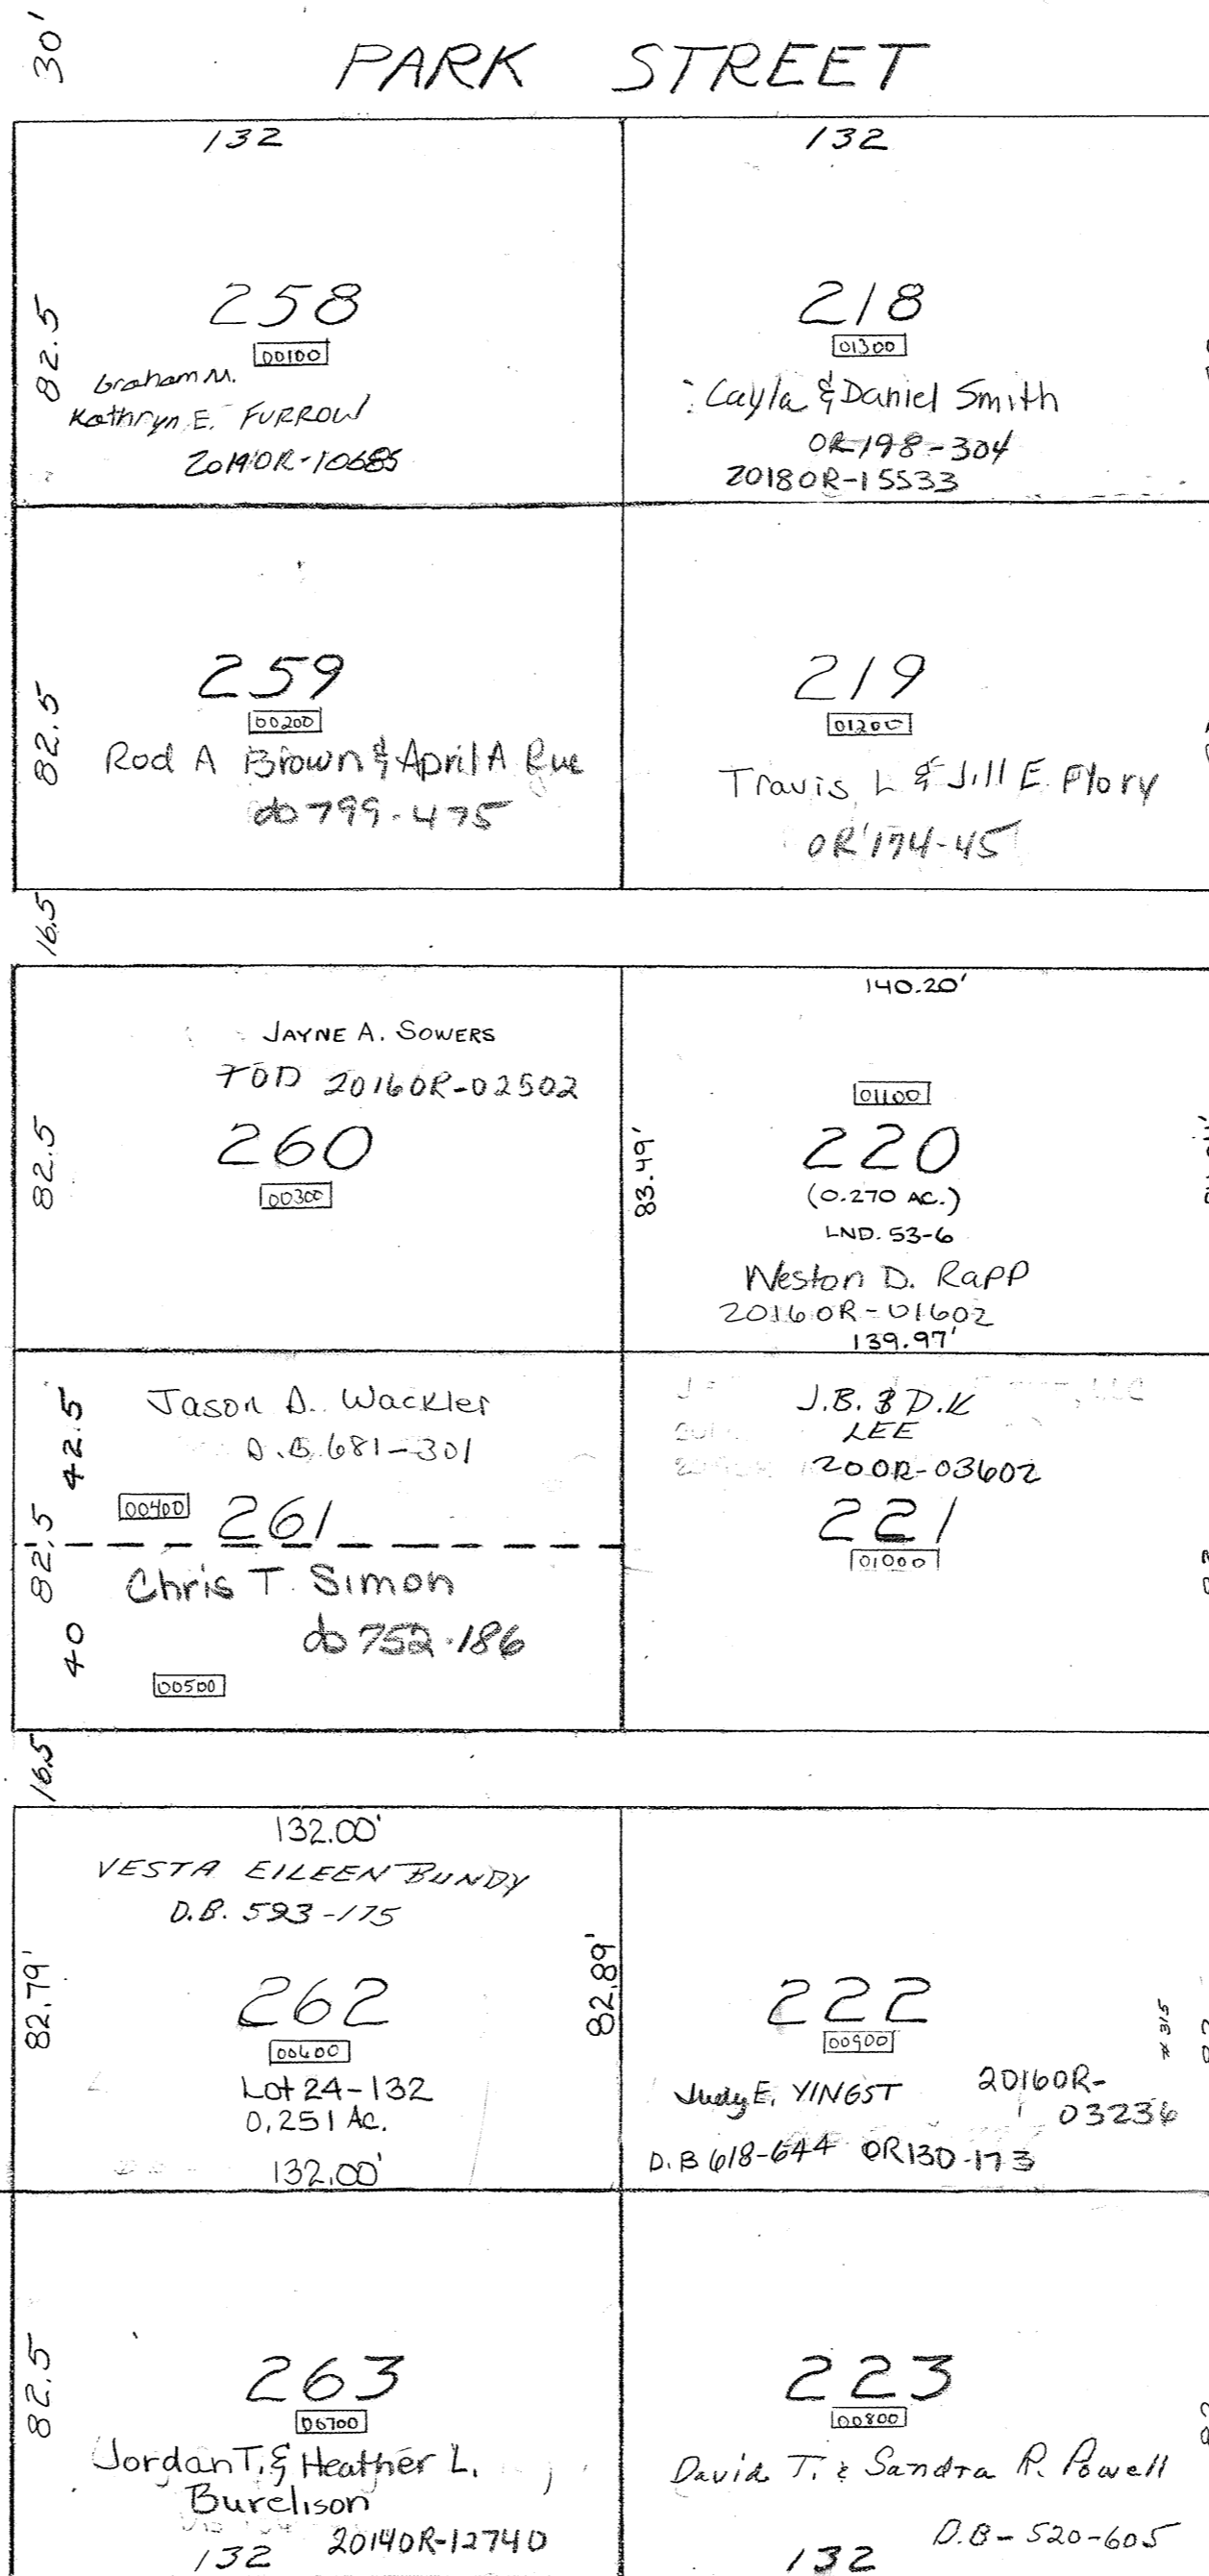 30'
PARK STREET
132
82.5
258
00100
Graham M.
Kathryn E. FURROW
2019OR-10685
132
218
01300
Cayla & Daniel Smith
OR 198-304
2018OR-15533
82.5
259
00200
Rod A Brown & April A Rue
db 799-475
219
01200
Travis L & Jill E. Flory
OR 174-45
16.5
82.5
JAYNE A. SOWERS
TOD 2016OR-02502
260
00300
140.20'
01100
83.49'
220
(0.270 AC.)
LND. 53-6
Weston D. Rapp
2016OR-01602
139.97'
42.5
82.5
40
Jason D. Wackler
D.B. 681-301
00400
261
Chris T. Simon
db 752-186
00500
J.B. & D.K
LEE
200R-03602
221
01000
16.5
132.00'
VESTA EILEEN BUNDY
D.B. 593-175
82.79'
82.89'
262
00600
Lot 24-132
0.251 AC.
132.00'
222
00900
# 315
Judy E. YINGST
2016OR-
03236
D.B 618-644 OR130-173
82.5
263
00700
Jordan T. & Heather L.
Burelison
2014OR-12740
132
223
00800
David T. & Sandra R. Powell
D.B-520-605
132